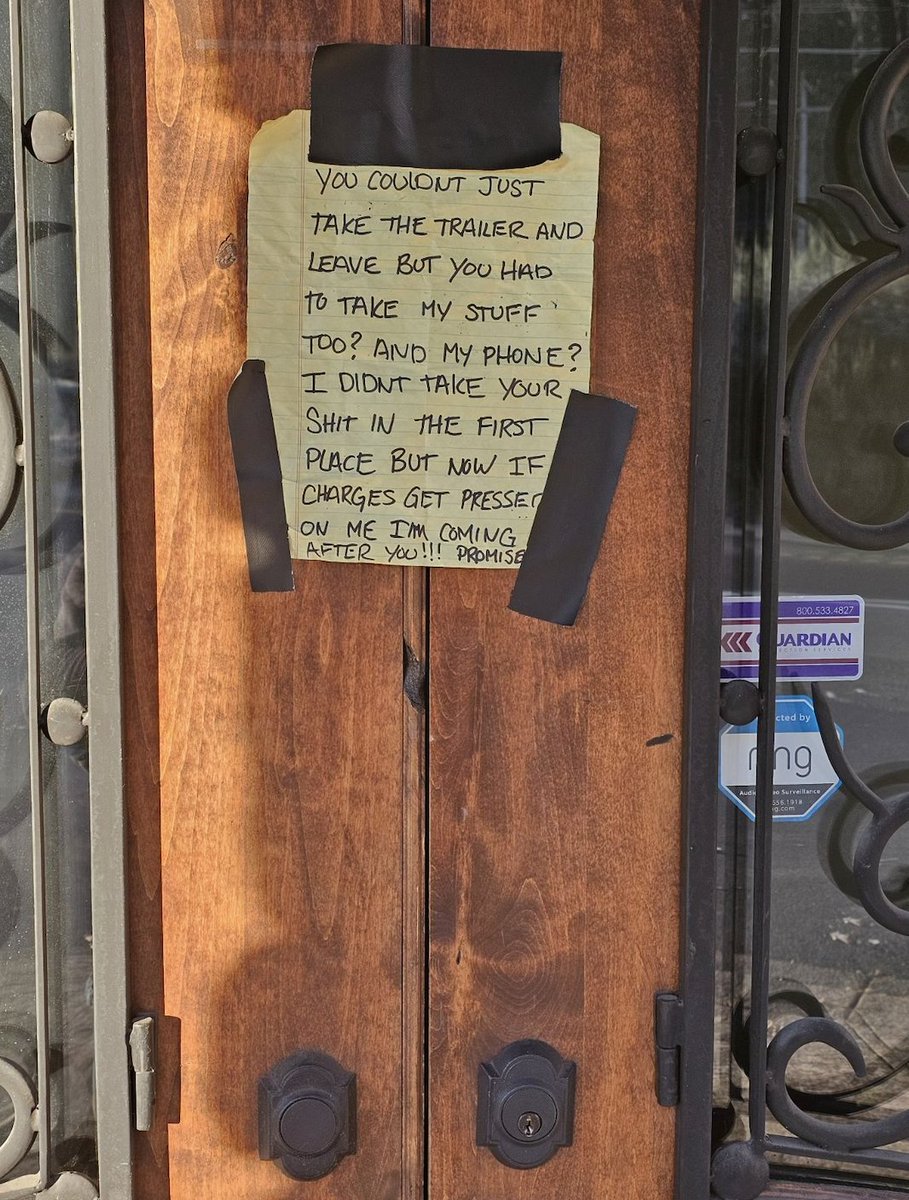 YOU COULDNT JUST
TAKE THE TRAILER AND
LEAVE BUT YOU HAD
TO TAKE MY STUFF
TOO? AND MY PHONE?
I DIDNT TAKE YOUR
SHIT IN THE FIRST
PLACE BUT NOW IF
CHARGES GET PRESSED
ON ME I'M COMING
AFTER YOU!!! PROMISE
800.533.4827
GUARDIAN
ring